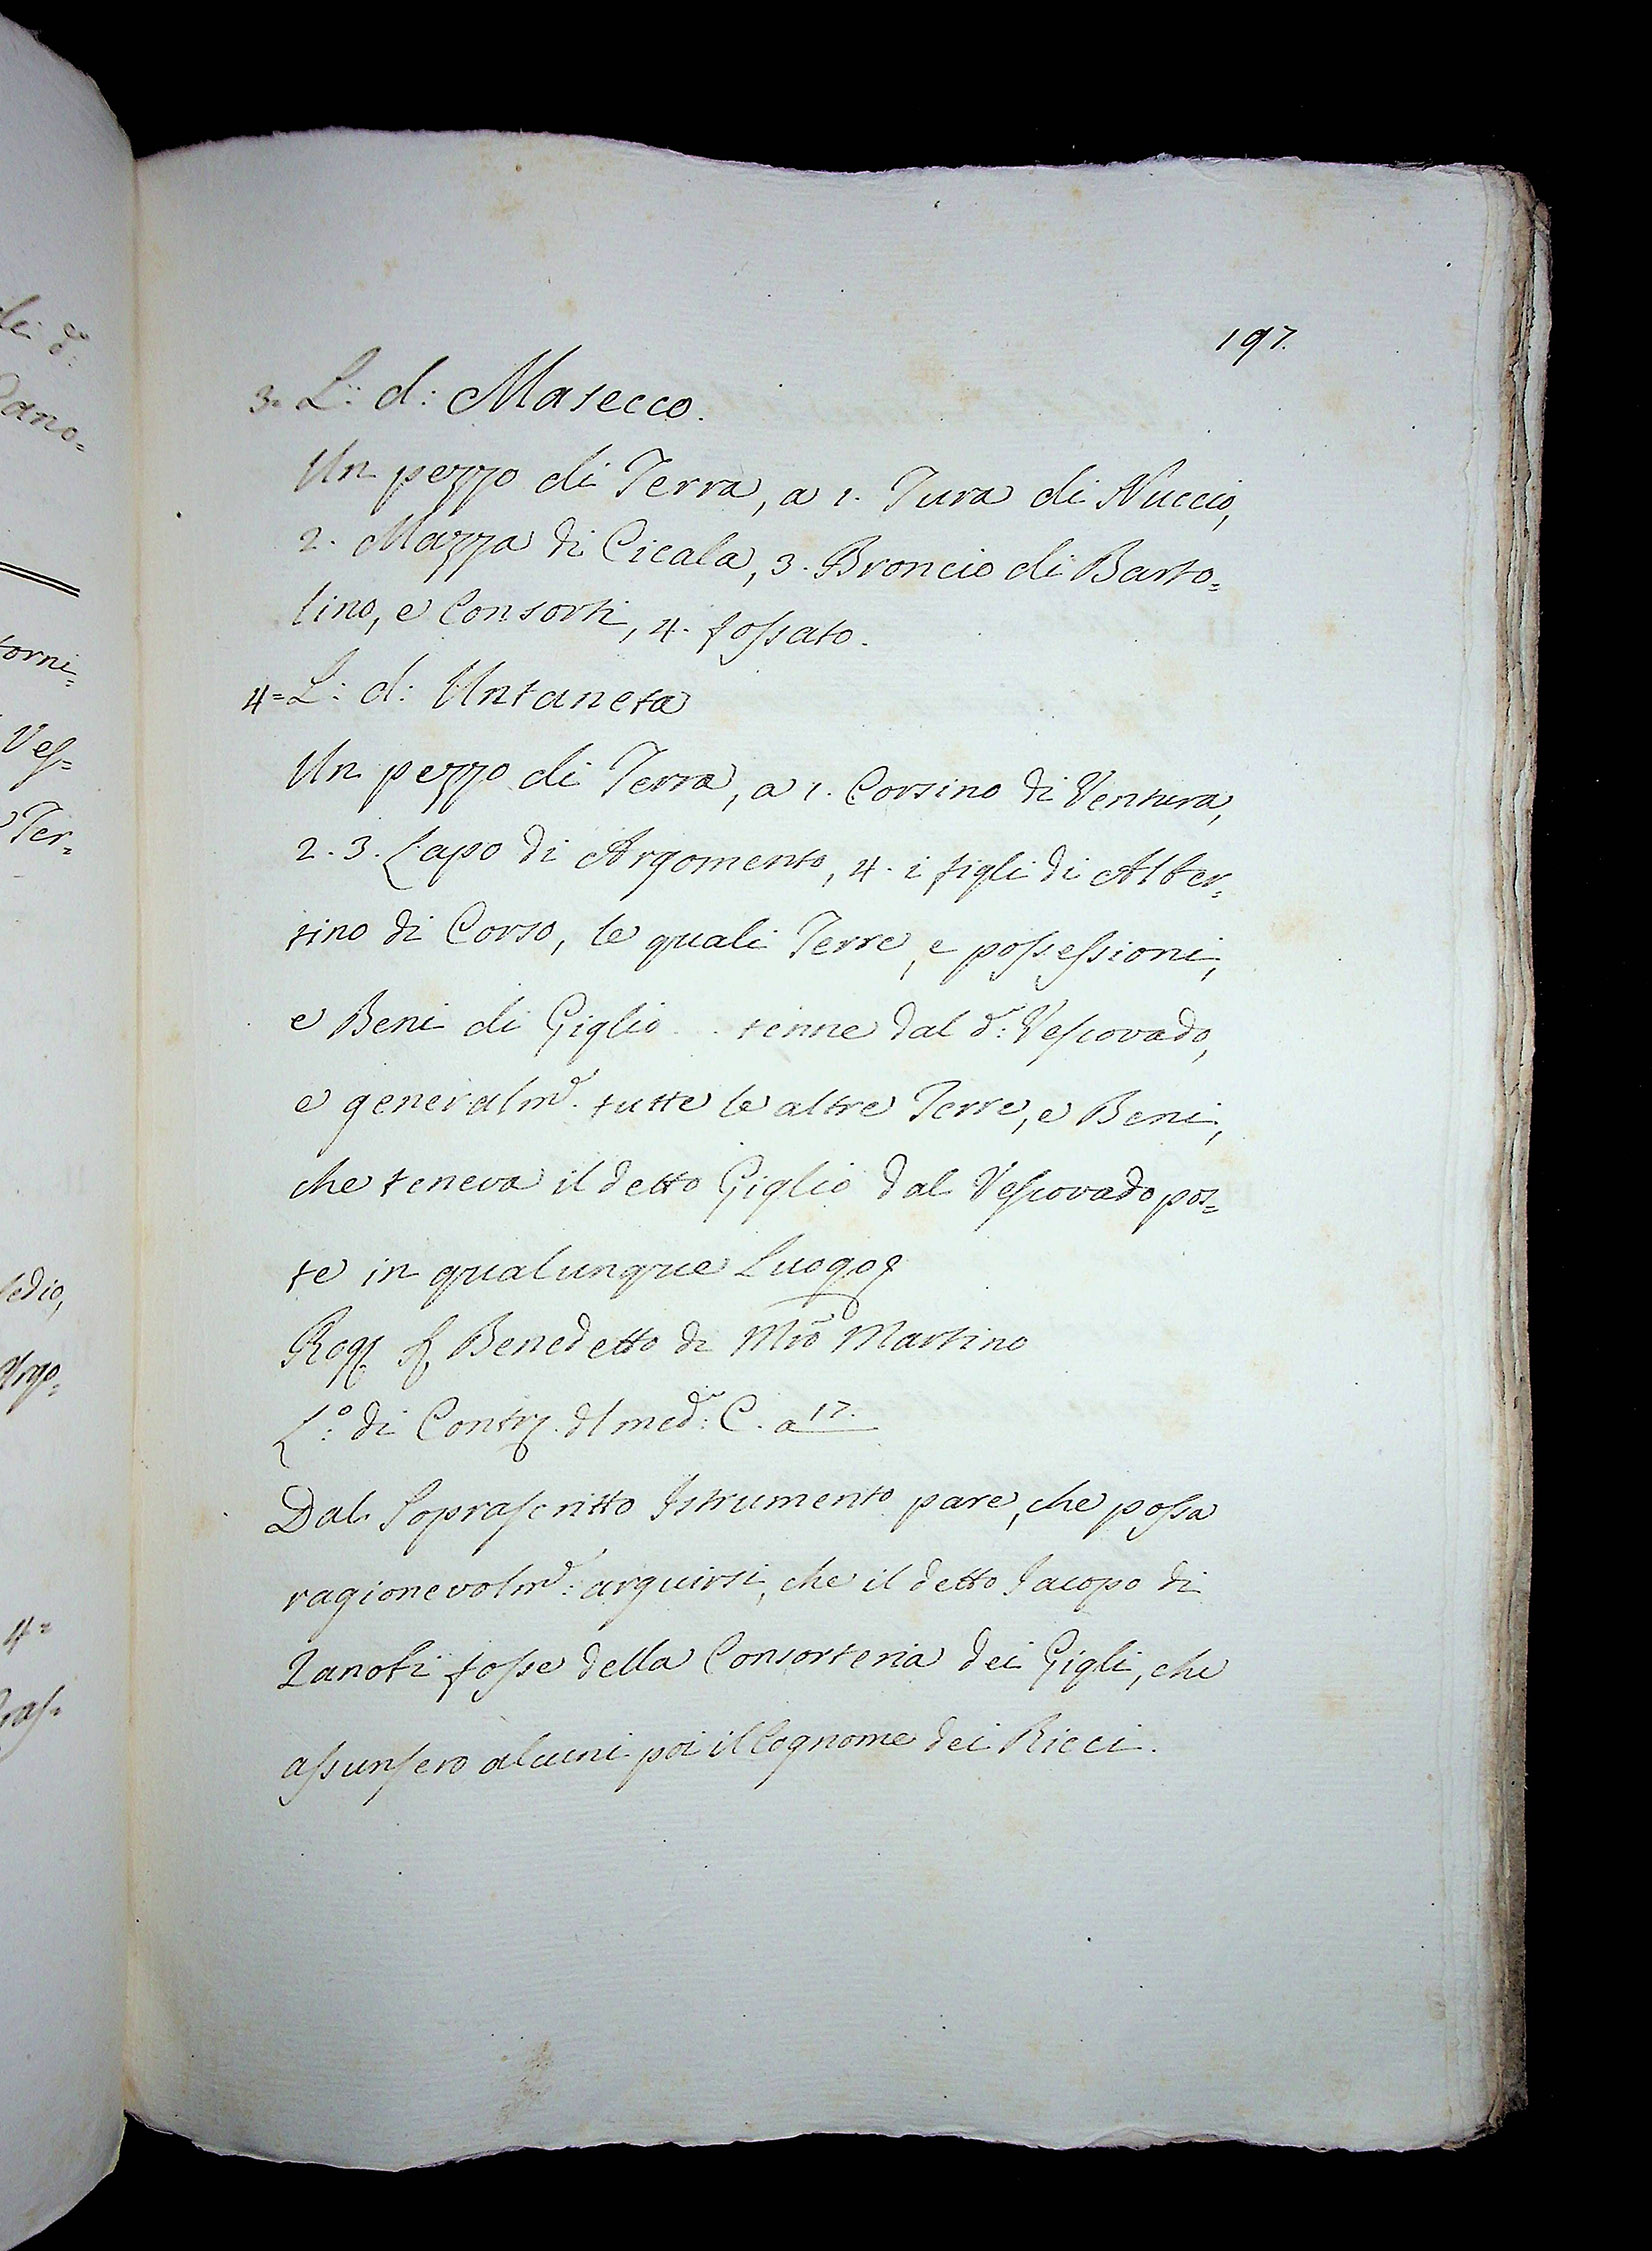 197.
3. L: d: Masecco.
Un pezzo di Terra, a 1. Tura di Nuccio,
2. Mazza di Cicala, 3. Broncio di Barto=
lino, e Consorti, 4. fossato.
4= L: d: Untaneta
Un pezzo di Terra, a 1. Corsino di Ventura,
2. 3. Lapo di Argomento, 4. i figli di Alber=
tino di Corso, le quali Terre, e possessioni,
e Beni di Giglio .. tenne dal d.º: Vescovado,
e generalm.e tutte le altre Terre, e Beni,
che teneva il detto Giglio dal Vescovado pos=
te in qualunque Luogo
Rog. S. Benedetto di Mro Martino
L.º: di Contr. dl med.º: C. a 17.
Dal Soprascritto Istrumento pare, che possa
ragionevolm.e: arguirsi, che il detto Jacopo di
Zanobi fosse della Consorteria dei Gigli, che
assunsero alcuni poi il Cognome dei Ricci.
dei d:
torni=
Ves=
Ter=
Argo=
4=